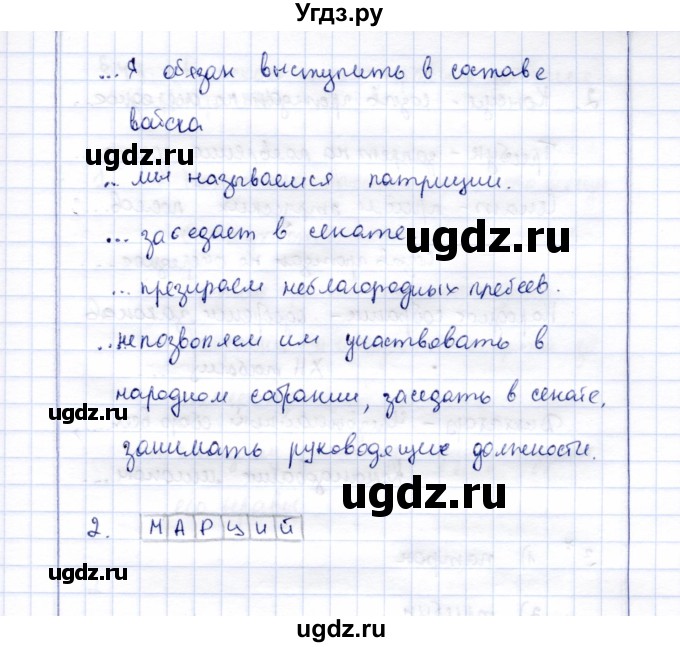 Угдз.ру
...Я обязан выступить в составе
войска
ugdz.ru
.. мы называемся патриции.
... заседает в сенате
ugdz.ru
... презираем неблагородных плебеев.
.. непозволяем им участвовать в
народном собрании, заседать в сенате,
ugdz.ru
занимать руководящие должности.
ugdz.ru
2. МАРЦИЙ
ugdz.ru
ugdz.ru